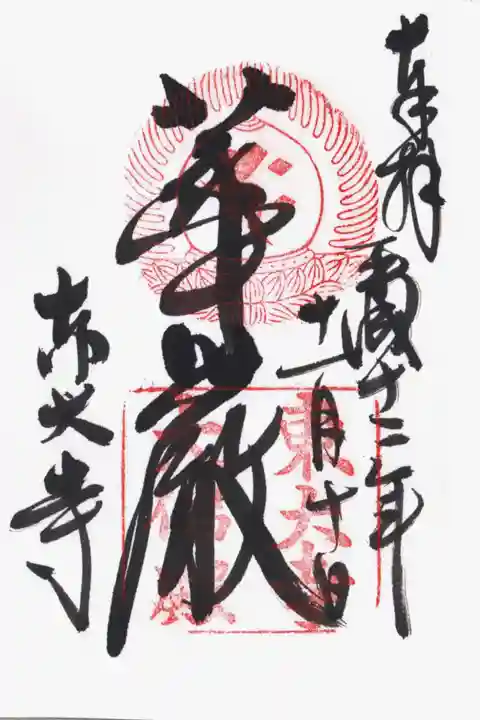 奉拝
平成十二年
十一月十日
華厳
東大寺
東大寺
大佛殿